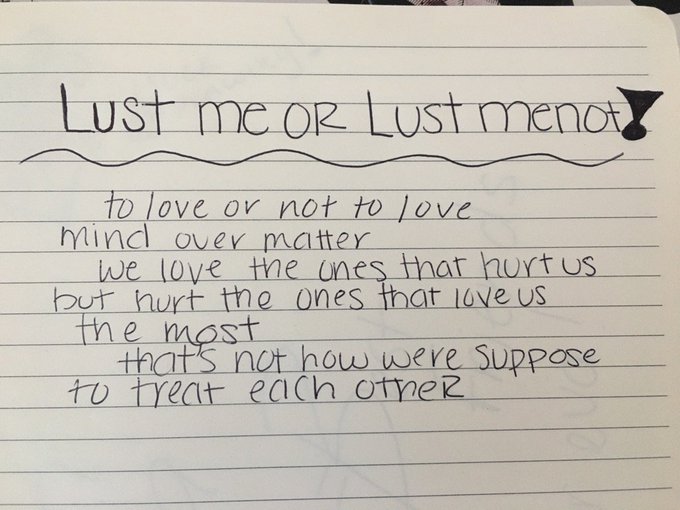 Lust me OR Lust menot!
to love or not to love
mind over matter
we love the ones that hurt us
but hurt the ones that love us
the most
that's not how were suppose
to treat each otheR